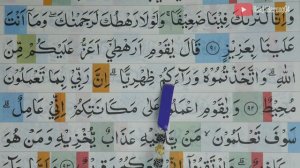 وَإِنَّا لَنَرَىٰكَ فِينَا ضَعِيفًا ۖ وَلَوْلَا رَهْطُكَ لَرَجَمْنَٰكَ ۖ وَمَآ أَنتَ
عَلَيْنَا بِعَزِيزٍ ٩١ قَالَ يَٰقَوْمِ أَرَهْطِىٓ أَعَزُّ عَلَيْكُم مِّنَ
ٱللَّهِ وَٱتَّخَذْتُمُوهُ وَرَآءَكُمْ ظِهْرِيًّا ۖ إِنَّ رَبِّى بِمَا تَعْمَلُونَ
مُحِيطٌ ٩٢ وَيَٰقَوْمِ ٱعْمَلُوا۟ عَلَىٰ مَكَانَتِكُمْ إِنِّى عَٰمِلٌ ۖ
سَوْفَ تَعْلَمُونَ مَن يَأْتِيهِ عَذَابٌ يُخْزِيهِ وَمَنْ هُوَ